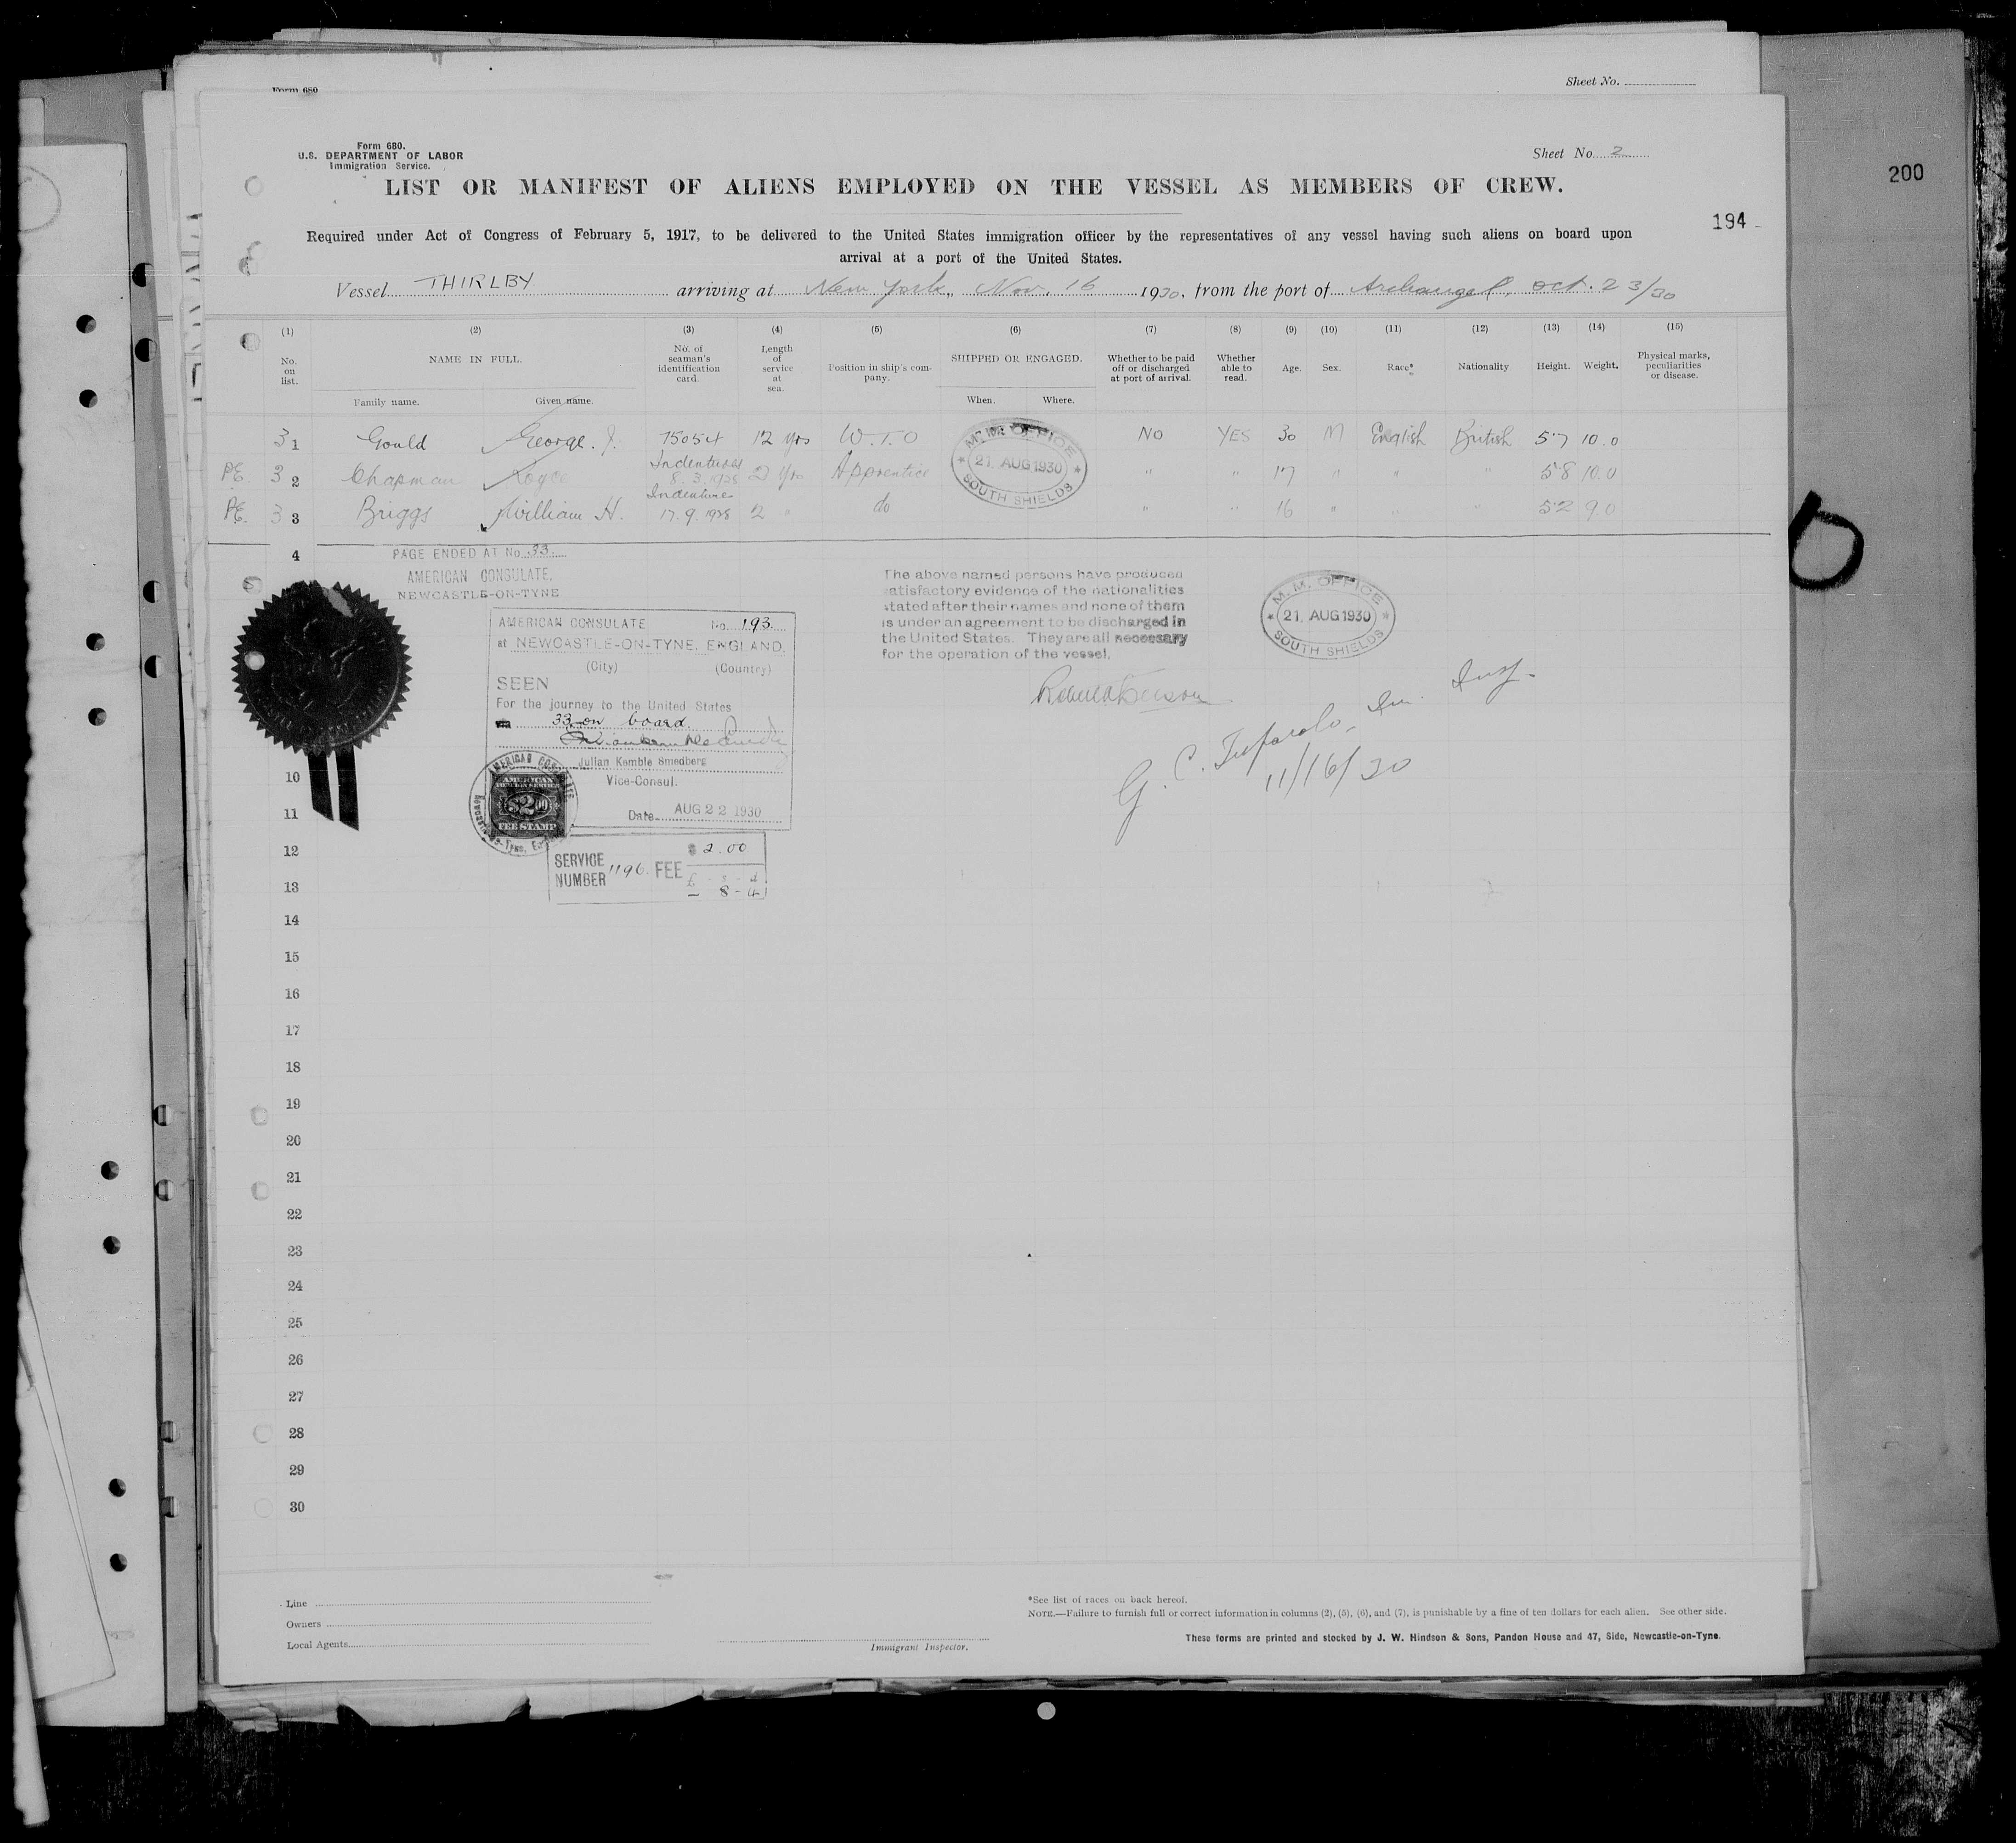 Form 680
Sheet No.
Form 680.
U.S. DEPARTMENT OF LABOR
Immigration Service.
Sheet No. 2
200
LIST OR MANIFEST OF ALIENS EMPLOYED ON THE VESSEL AS MEMBERS OF CREW.
194
Required under Act of Congress of February 5, 1917, to be delivered to the United States immigration officer by the representatives of any vessel having such aliens on board upon
arrival at a port of the United States.
Vessel THIRLBY arriving at New York, Nov. 16 1930, from the port of Archangel, oct. 23/30
(1) (2) (3) (4) (5) (6) (7) (8) (9) (10) (11) (12) (13) (14) (15)
No. on list. NAME IN FULL. No. of seaman's identification card. Length of service at sea. Position in ship's company. SHIPPED OR ENGAGED. Whether to be paid off or discharged at port of arrival. Whether able to read. Age. Sex. Race* Nationality Height. Weight. Physical marks, peculiarities or disease.
Family name. Given name. When. Where.
31 Gould George. J. 75054 12 yrs W.T.O NO YES 30 M English British 5·7 10.0
PE. 32 Chapman Royce Indentures 8.3.1928 2 yrs Apprentice " " 17 " " " 5·8 10.0
PE. 33 Briggs William H. Indentures 17.9.1928 2 " do " " 16 " " " 5·2 9.0
M. M. OFFICE
21 AUG 1930
SOUTH SHIELDS
4
PAGE ENDED AT No. 33.
AMERICAN CONSULATE.
NEWCASTLE-ON-TYNE
The above named persons have produced
satisfactory evidence of the nationalities
stated after their names and none of them
is under an agreement to be discharged in
the United States. They are all necessary
for the operation of the vessel.
M. M. OFFICE
21 AUG 1930
SOUTH SHIELDS
AMERICAN CONSULATE No. 193.
at NEWCASTLE-ON-TYNE, ENGLAND.
(City) (Country)
SEEN
For the journey to the United States
33 on board.
Julian Kemble Smedberg
Vice-Consul.
Date AUG 22 1930
11/16/30
AMERICAN CONSULATE
AMERICAN
FOREIGN SERVICE
$2.00
FEE STAMP
SERVICE NUMBER 1196. FEE $ 2.00
£ - s - d
- 8 - 4
10
11
12
13
14
15
16
17
18
19
20
21
22
23
24
25
26
27
28
29
30
Line
Owners
Local Agents
Immigrant Inspector.
*See list of races on back hereof.
NOTE.—Failure to furnish full or correct information in columns (2), (5), (6), and (7), is punishable by a fine of ten dollars for each alien. See other side.
These forms are printed and stocked by J. W. Hindson & Sons, Pandon House and 47, Side, Newcastle-on-Tyne.